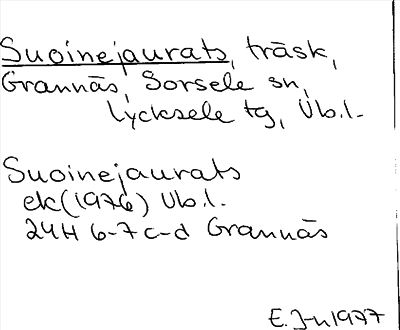 Suoinejaurats, träsk,
Grannäs, Sorsele sn,
Lycksele tg, Vb.l.
Suoinejaurats
ek (1976) Vb.l.
24H 6-7 c-d Grannäs
E. J-n 1977